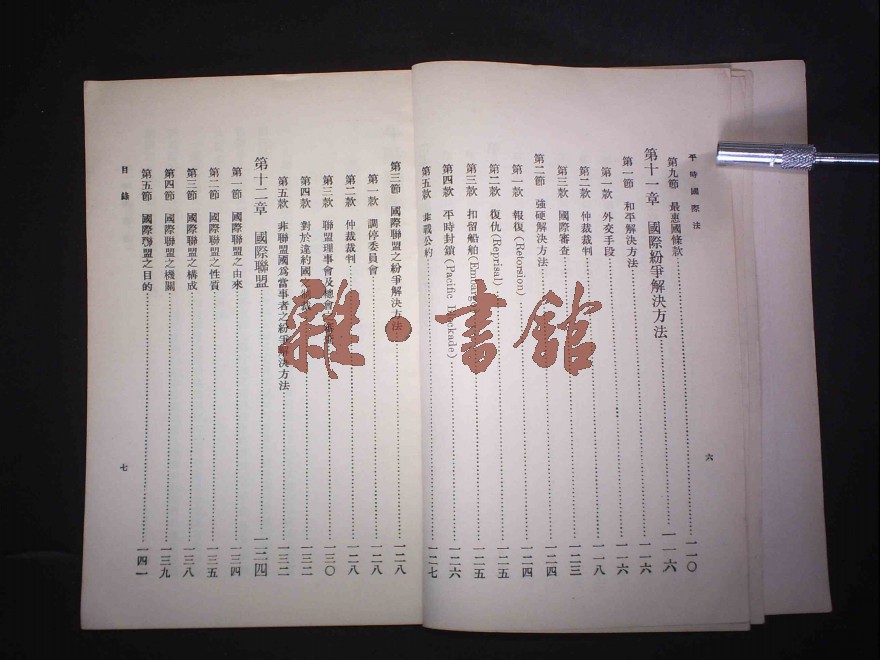 平時國際法
第九節　最惠國條款……一一〇
第十一章　國際紛爭解決方法……一一六
第一節　和平解決方法……一一六
第一款　外交手段……一一六
第二款　仲裁裁判……一一八
第三款　國際審查……一二三
第二節　強硬解決方法……一二四
第一款　報復(Retorsion)……一二四
第二款　復仇(Reprisal)……一二五
第三款　扣留船舶(Embargo……一二五
第四款　平時封鎖(Pacific Blockade)……一二六
第五款　非戰公約……一二七
六
第三節　國際聯盟之紛爭解決方法……一二八
第一款　調停委員會……一二八
第二款　仲裁裁判……一二八
第三款　聯盟理事會及總會……一三〇
第四款　對於違約國……一三二
第五款　非聯盟國為當事者之紛爭解決方法……一三二
第十二章　國際聯盟……一三四
第一節　國際聯盟之由來……一三四
第二節　國際聯盟之性質……一三五
第三節　國際聯盟之構成……一三八
第四節　國際聯盟之機關……一三九
第五節　國際聯盟之目的……一四一
目錄
七
雜·書館